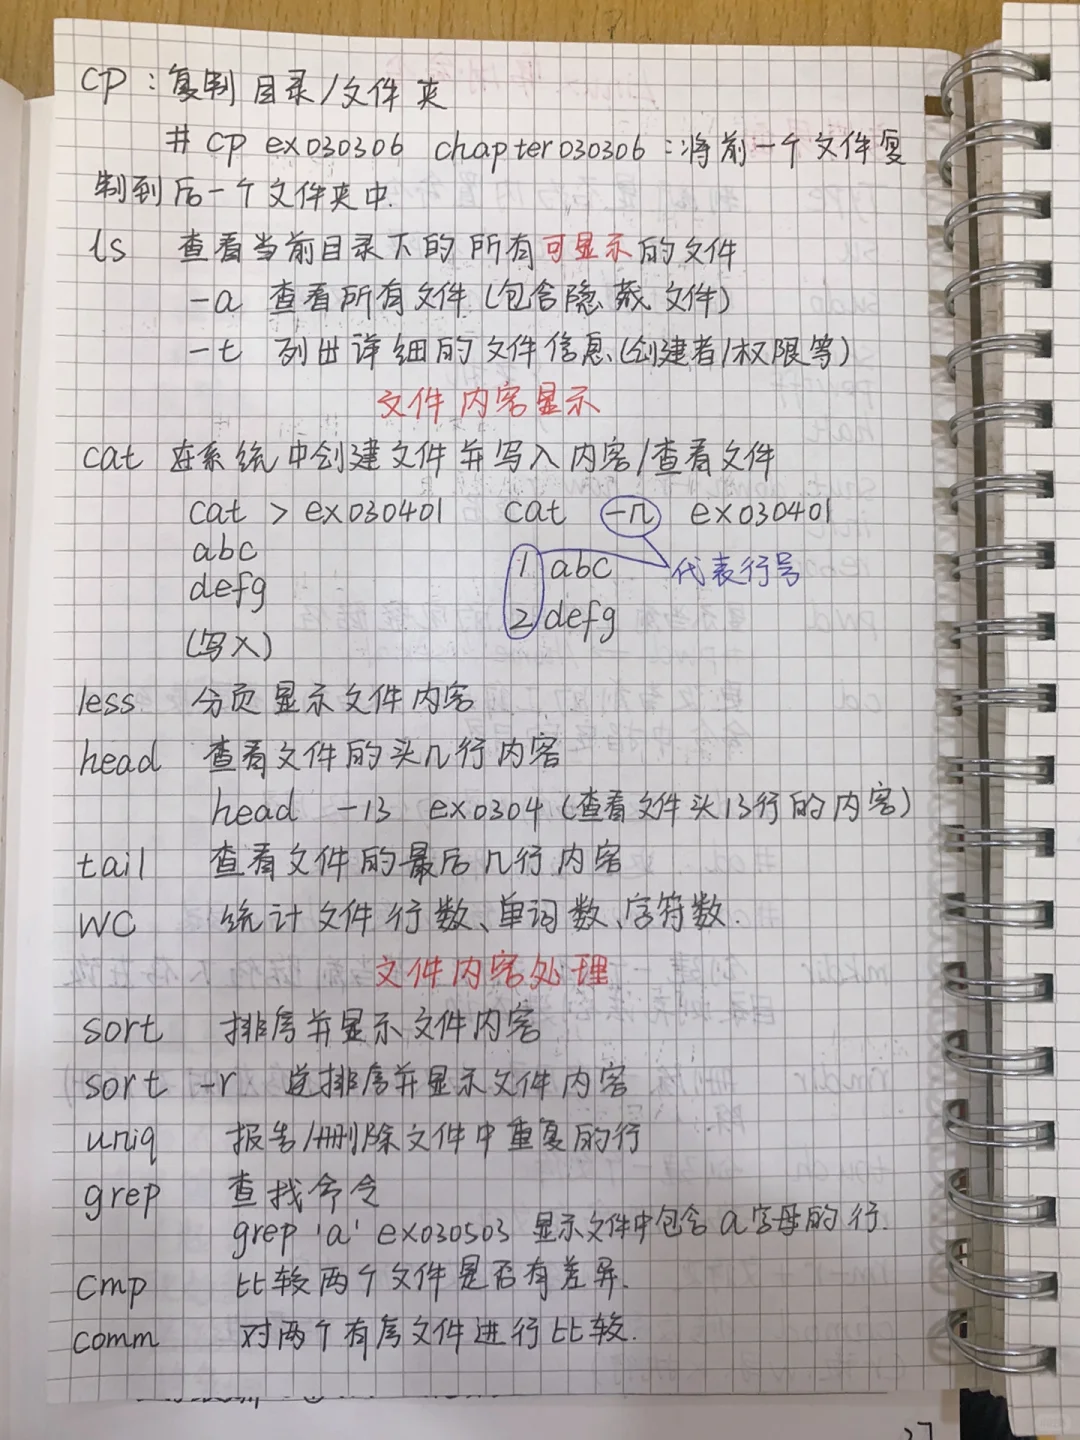 cp：复制目录/文件夹
# cp ex030306 chapter030306：将前一个文件复
制到后一个文件夹中.
ls 查看当前目录下的所有可显示的文件
-a 查看所有文件(包含隐藏文件)
-t 列出详细的文件信息(创建者/权限等)
文件内容显示
cat 在系统中创建文件并写入内容/查看文件
cat > ex030401 cat -n ex030401
abc 1 abc 代表行号
defg 2 defg
(写入)
less 分页显示文件内容
head 查看文件的头几行内容
head -13 ex0304 (查看文件头13行的内容)
tail 查看文件的最后几行内容
WC 统计文件行数、单词数、字符数.
文件内容处理
sort 排序并显示文件内容
sort -r 逆排序并显示文件内容
uniq 报告/删除文件中重复的行
grep 查找命令
grep 'a' ex030503 显示文件中包含a字母的行.
cmp 比较两个文件是否有差异.
comm 对两个有序文件进行比较.